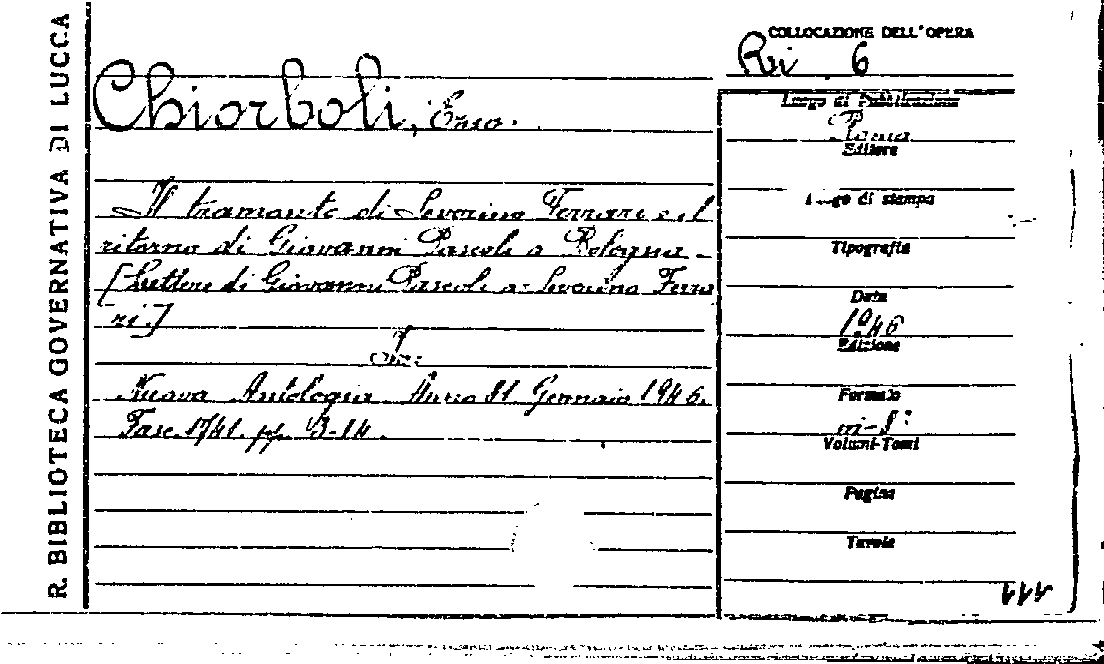 R. BIBLIOTECA GOVERNATIVA DI LUCCA
COLLOCAZIONE DELL'OPERA
Ri. 6
Chiorboli, Enzo.
Il tramonto di Severino Ferrari e il
ritorno di Giovanni Pascoli a Bologna -
[Lettere di Giovanni Pascoli a Severino Ferra
ri.]
In:
Nuova Antologia. Anno 81 Gennaio 1946.
Fasc. 1741. pp. 3-14.
Luogo di Pubblicazione
Roma
Editore
Luogo di stampa
Tipografia
Data
1946
Edizione
Formato
in-8°
Volumi-Tomi
Pagine
Tavole